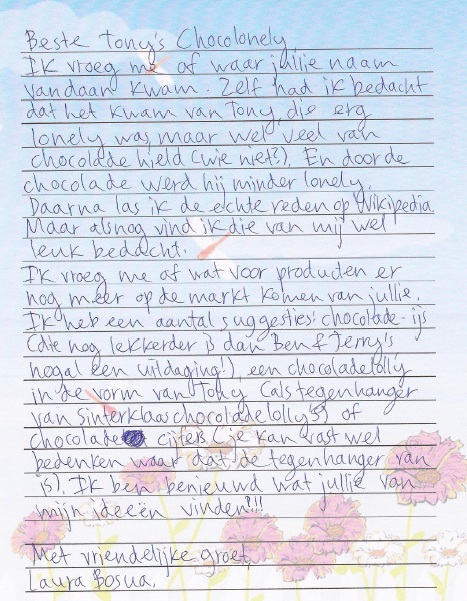 Beste Tony's Chocolonely,
Ik vroeg me af waar jullie naam
vandaan kwam. Zelf had ik bedacht
dat het kwam van Tony, die erg
lonely was, maar wel veel van
chocolade hield (wie niet?). En door de
chocolade werd hij minder lonely.
Daarna las ik de echte reden op Wikipedia
Maar alsnog vind ik die van mij wel
leuk bedacht.
Ik vroeg me af wat voor producten er
nog meer op de markt komen van jullie.
Ik heb een aantal suggesties: chocolade-ijs
(die nog lekkerder is dan Ben & Jerry's
nogal een uitdaging!), een chocoladelolly
in de vorm van Tony (als tegenhanger
van Sinterklaaschocoladelolly's) of
chocolade cijfers (je kan vast wel
bedenken waar dat de tegenhanger van
is). Ik ben benieuwd wat jullie van
mijn ideeën vinden?!!!
Met vriendelijke groet,
Laura Bosua.